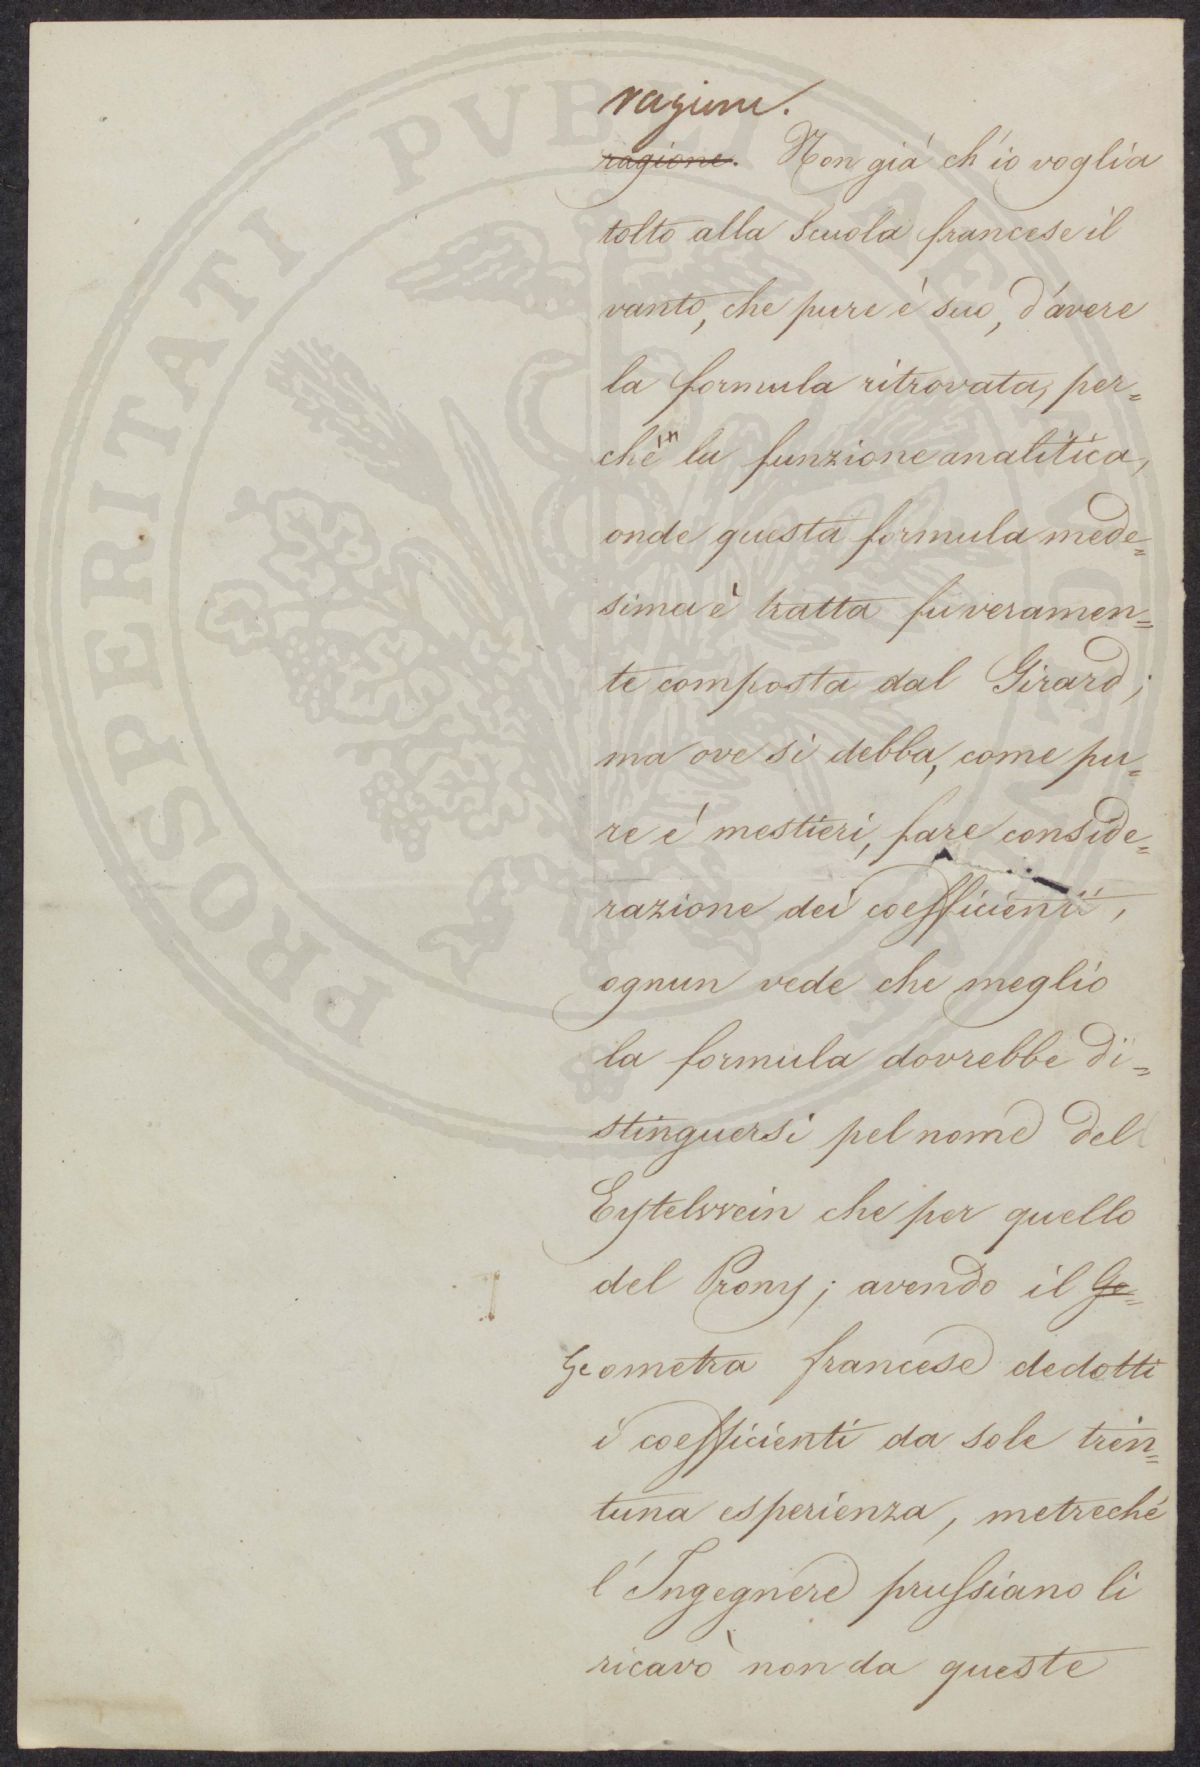 razione.
ragione. Non giá ch'io voglia
tolto alla Scuola francese il
vanto, che pure è suo, d'avere
la formula ritrovata, per=
ché in la funzione analitica,
onde questa formula mede=
sima è tratta fu veramen=
te composta dal Girard;
ma ove si debba, come pu=
re é mestieri, fare conside=
razione dei coefficienti,
ognun vede che meglio
la formula dovrebbe di=
stinguersi pel nome del
Eytelwein che per quello
del Prony; avendo il Ge=
Geometra francese dedotti
i coefficienti da sole tren=
tuna esperienza, metreché
l'Ingegnere prussiano li
ricavò non da queste
PROSPERITATI PVBLICAE